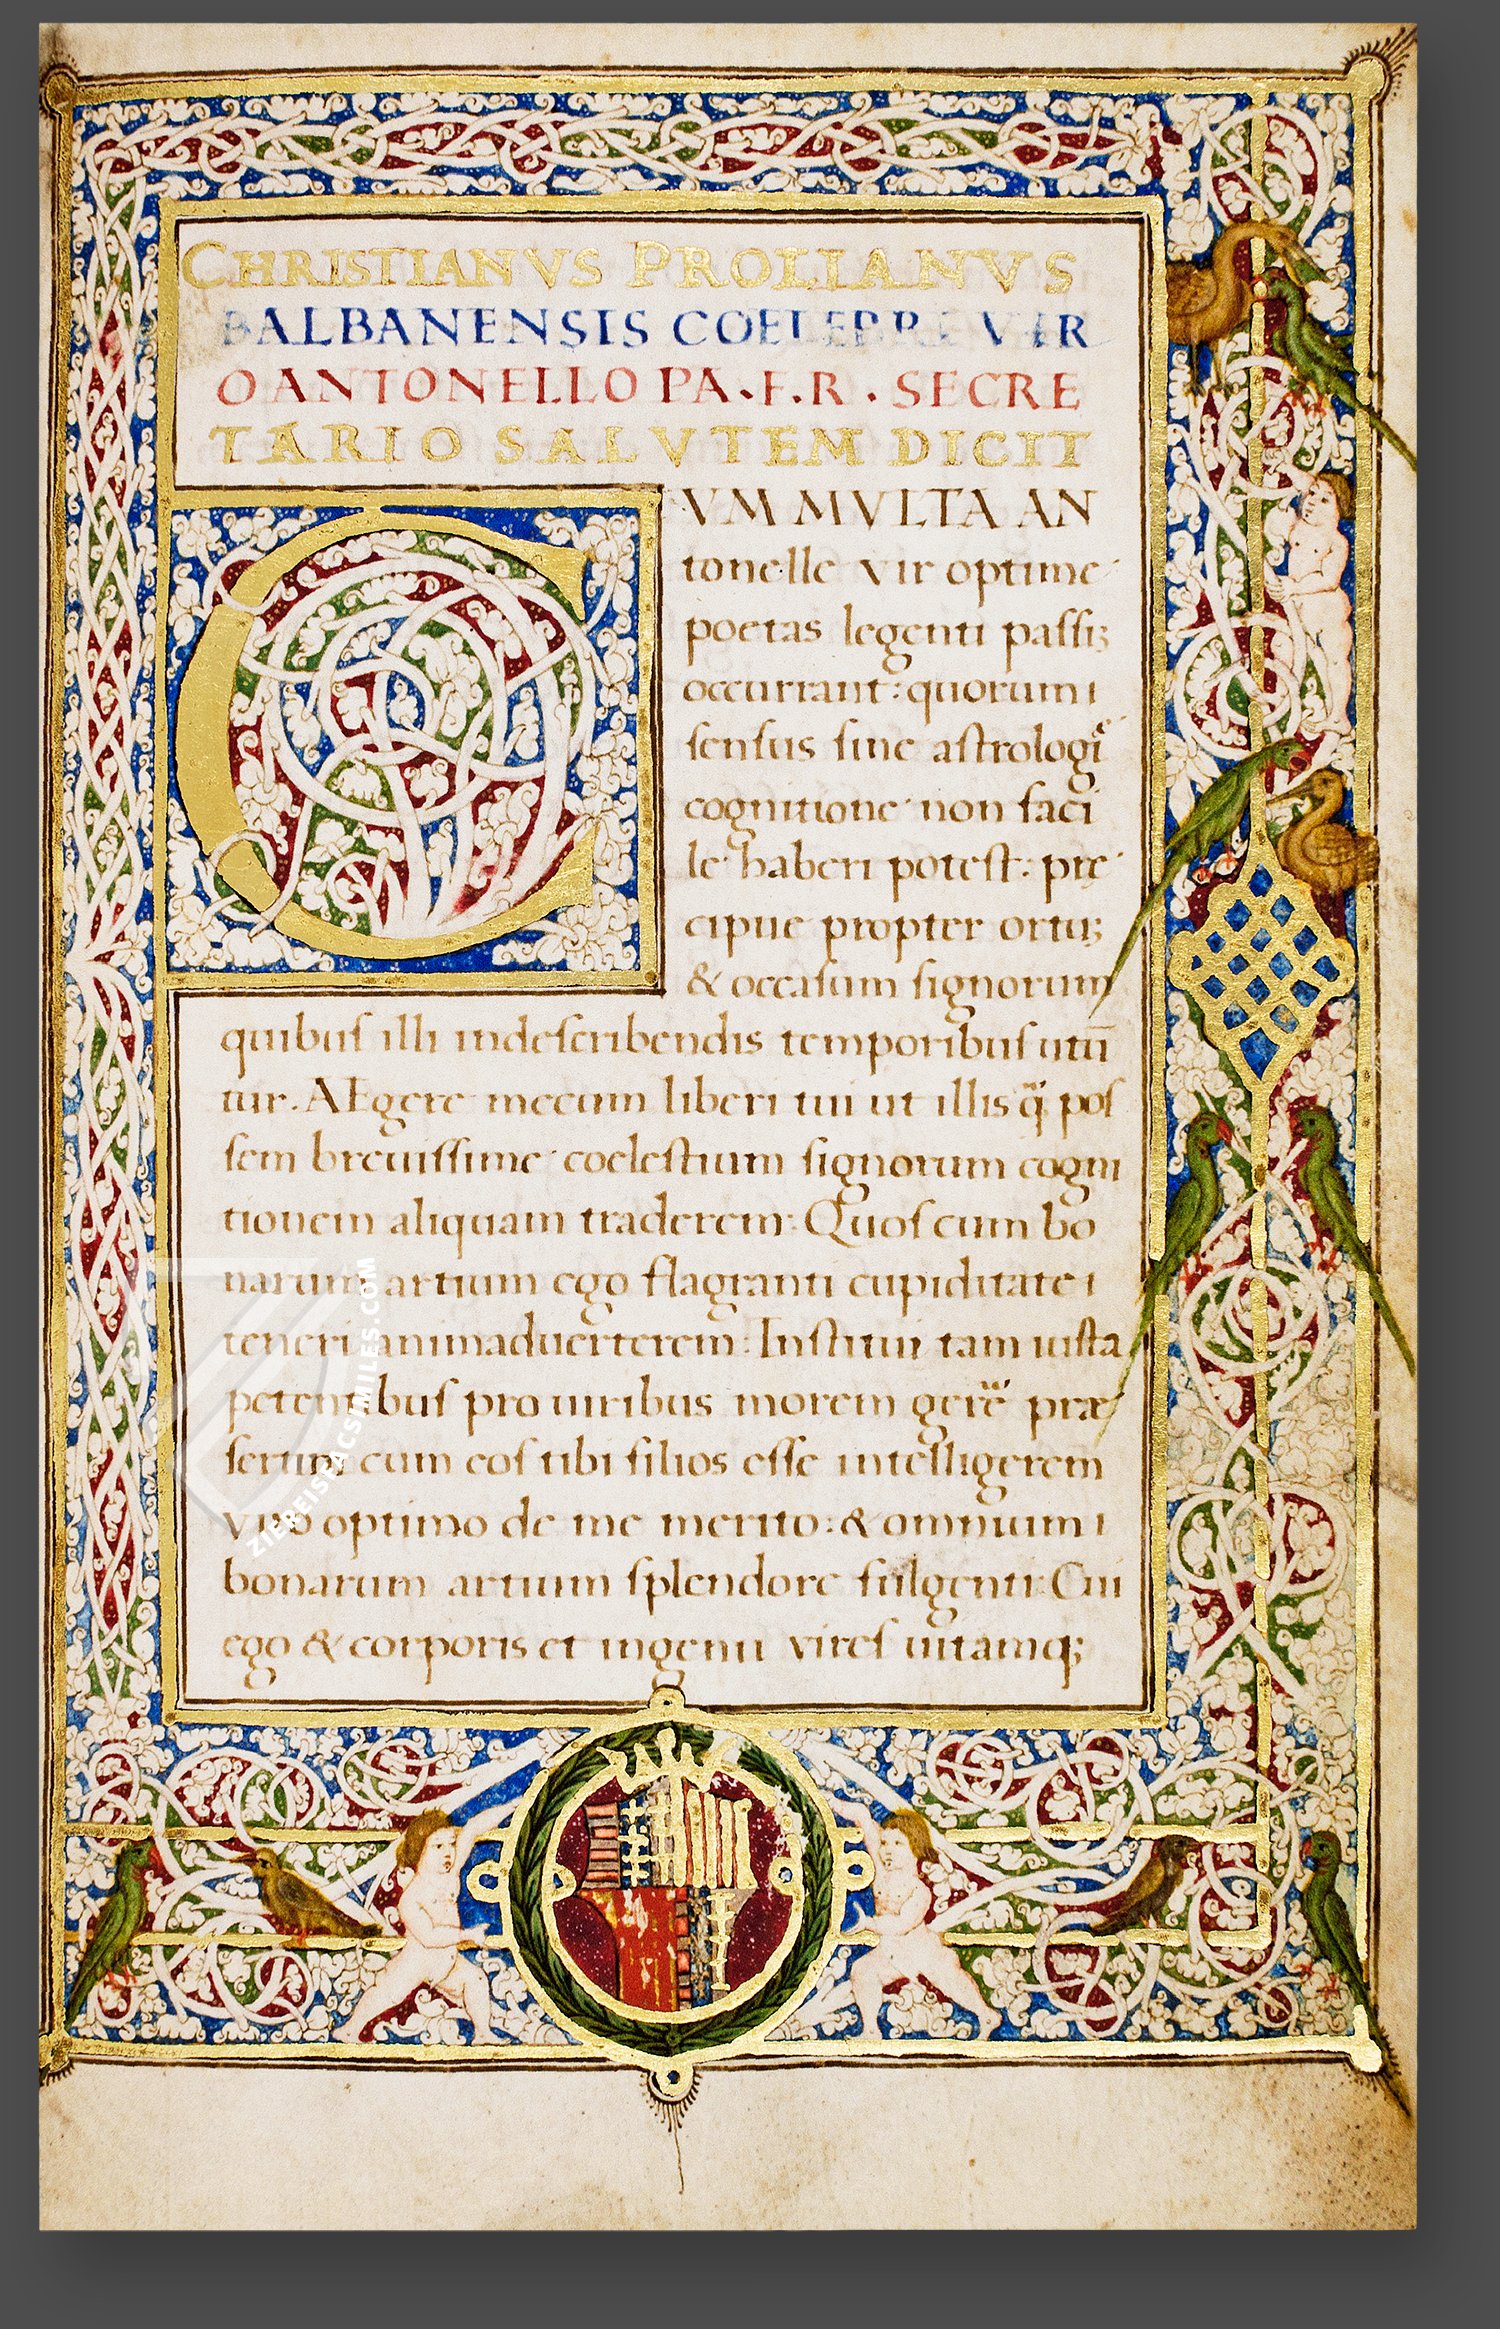 CHRISTIANVS PROLIANVS
BALBANENSIS COELEBRI VIR
O ANTONELLO PA·F·R· SECRE
TARIO SALVTEM DICIT
CVM MVLTA AN
tonelle vir optime
poetas legenti passiʒ
occurrant: quorum
sensus sine astrologię
cognitione non faci
le haberi potest: pre
cipue propter ortuʒ
& occasum signorum
quibus illi indescribendis temporibus utū
tur. AEgere mecum liberi tui ut illis q̄ pos
sem breuissime coelestium signorum cogni
tionem aliquam traderem: Quos cum bo
narum artium ego flagranti cupiditate
teneri animaduerterem: Institui tam iusta
petentibus pro uiribus morem gerere præ
sertim cum eos tibi filios esse intelligerem
viro optimo de me merito: & omnium
bonarum artium splendore fulgenti: Cui
ego & corporis et ingenii vires uitamqꝫ
ZIEREISFACSIMILES.COM